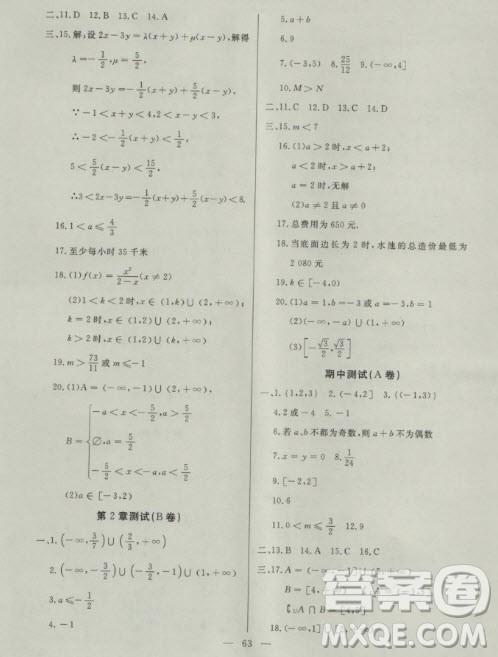 二、11.D  12.B  13.C  14.A
三、15.解:设 2x-3y=λ(x+y)+μ(x-y),解得
λ=-1/2,μ=5/2,
则 2x-3y=-1/2(x+y)+5/2(x-y).
∵-1<x+y<4,2<x-y<3,
∴-2<-1/2(x+y)<1/2,
5<5/2(x-y)<15/2,
∴3<2x-3y=-1/2(x+y)+5/2(x-y)<8.
16.1<a≤4/3
17.至少每小时 35 千米
18.(1)f(x)=x²/(2-x)(x≠2)
(2)1<k<2 时,x∈(1,k)∪(2,+∞);
k=2 时,x∈(1,2)∪(2,+∞);
k>2 时,x∈(1,2)∪(k,+∞)
19.m>73/11或 m≤-1
20.(1)A=(-∞,-1)∪(2,+∞),
B={ -a<x<-5/2, a<5/2
∅, a=5/2
-5/2<x<-a, a>5/2
(2)a∈[-3,2)
第 2 章测试(B 卷)
一、1.(-∞,3/7)∪(2/3,+∞)
2.(-∞,-3/2)∪(3/2,+∞)
3.a≤-1/2
4.-1
5.a+b
6.9
7.(-3,5)  8.25/12  9.(-∞,4]
10.M>N
二、11.C  12.D  13.C  14.D
三、15.m<7
16.(1)a>2 时,x<a+2;
a<2 时,x>a+2;
a=2 时,无解
(2)a≠2 且 a≠0
17.总费用为 650 元.
18.当底面边长为 2 时,水池的总造价最低为
2 080 元
19.k∈[-4,0)
20.(1)a=-3,b=-1或 a=3,b=1
(2)(-∞,0)
(3)[-√3/2,√3/2]
期中测试(A 卷)
一、1.{1,2,3}  2.(-4,2]  3.{(-1,3)}
4.2或-4  5.-1
6.若 a、b 不都为奇数,则 a+b 不为偶数
7.x=0  8.1/24
9.[-2,2]
10.6
11.0<m≤3/2  12.9
二、13.B  14.A  15.C  16.C
三、17.A=(-∞,-2
B=[4,
∁UA∩B=[4,
18.(-∞,-1]
63
答案圈
MXQE.COM